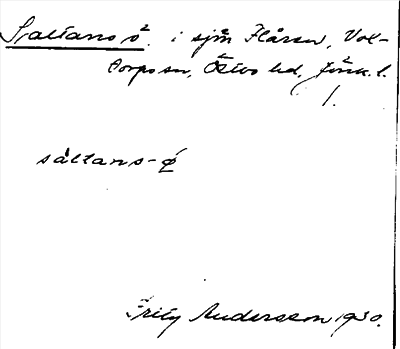 Saltans ö. i sjön Flåren, Vol-
torps sn, Östbo hd, Jönk. l.
1.
sáltans-ø
Fritz Andersson 1930.